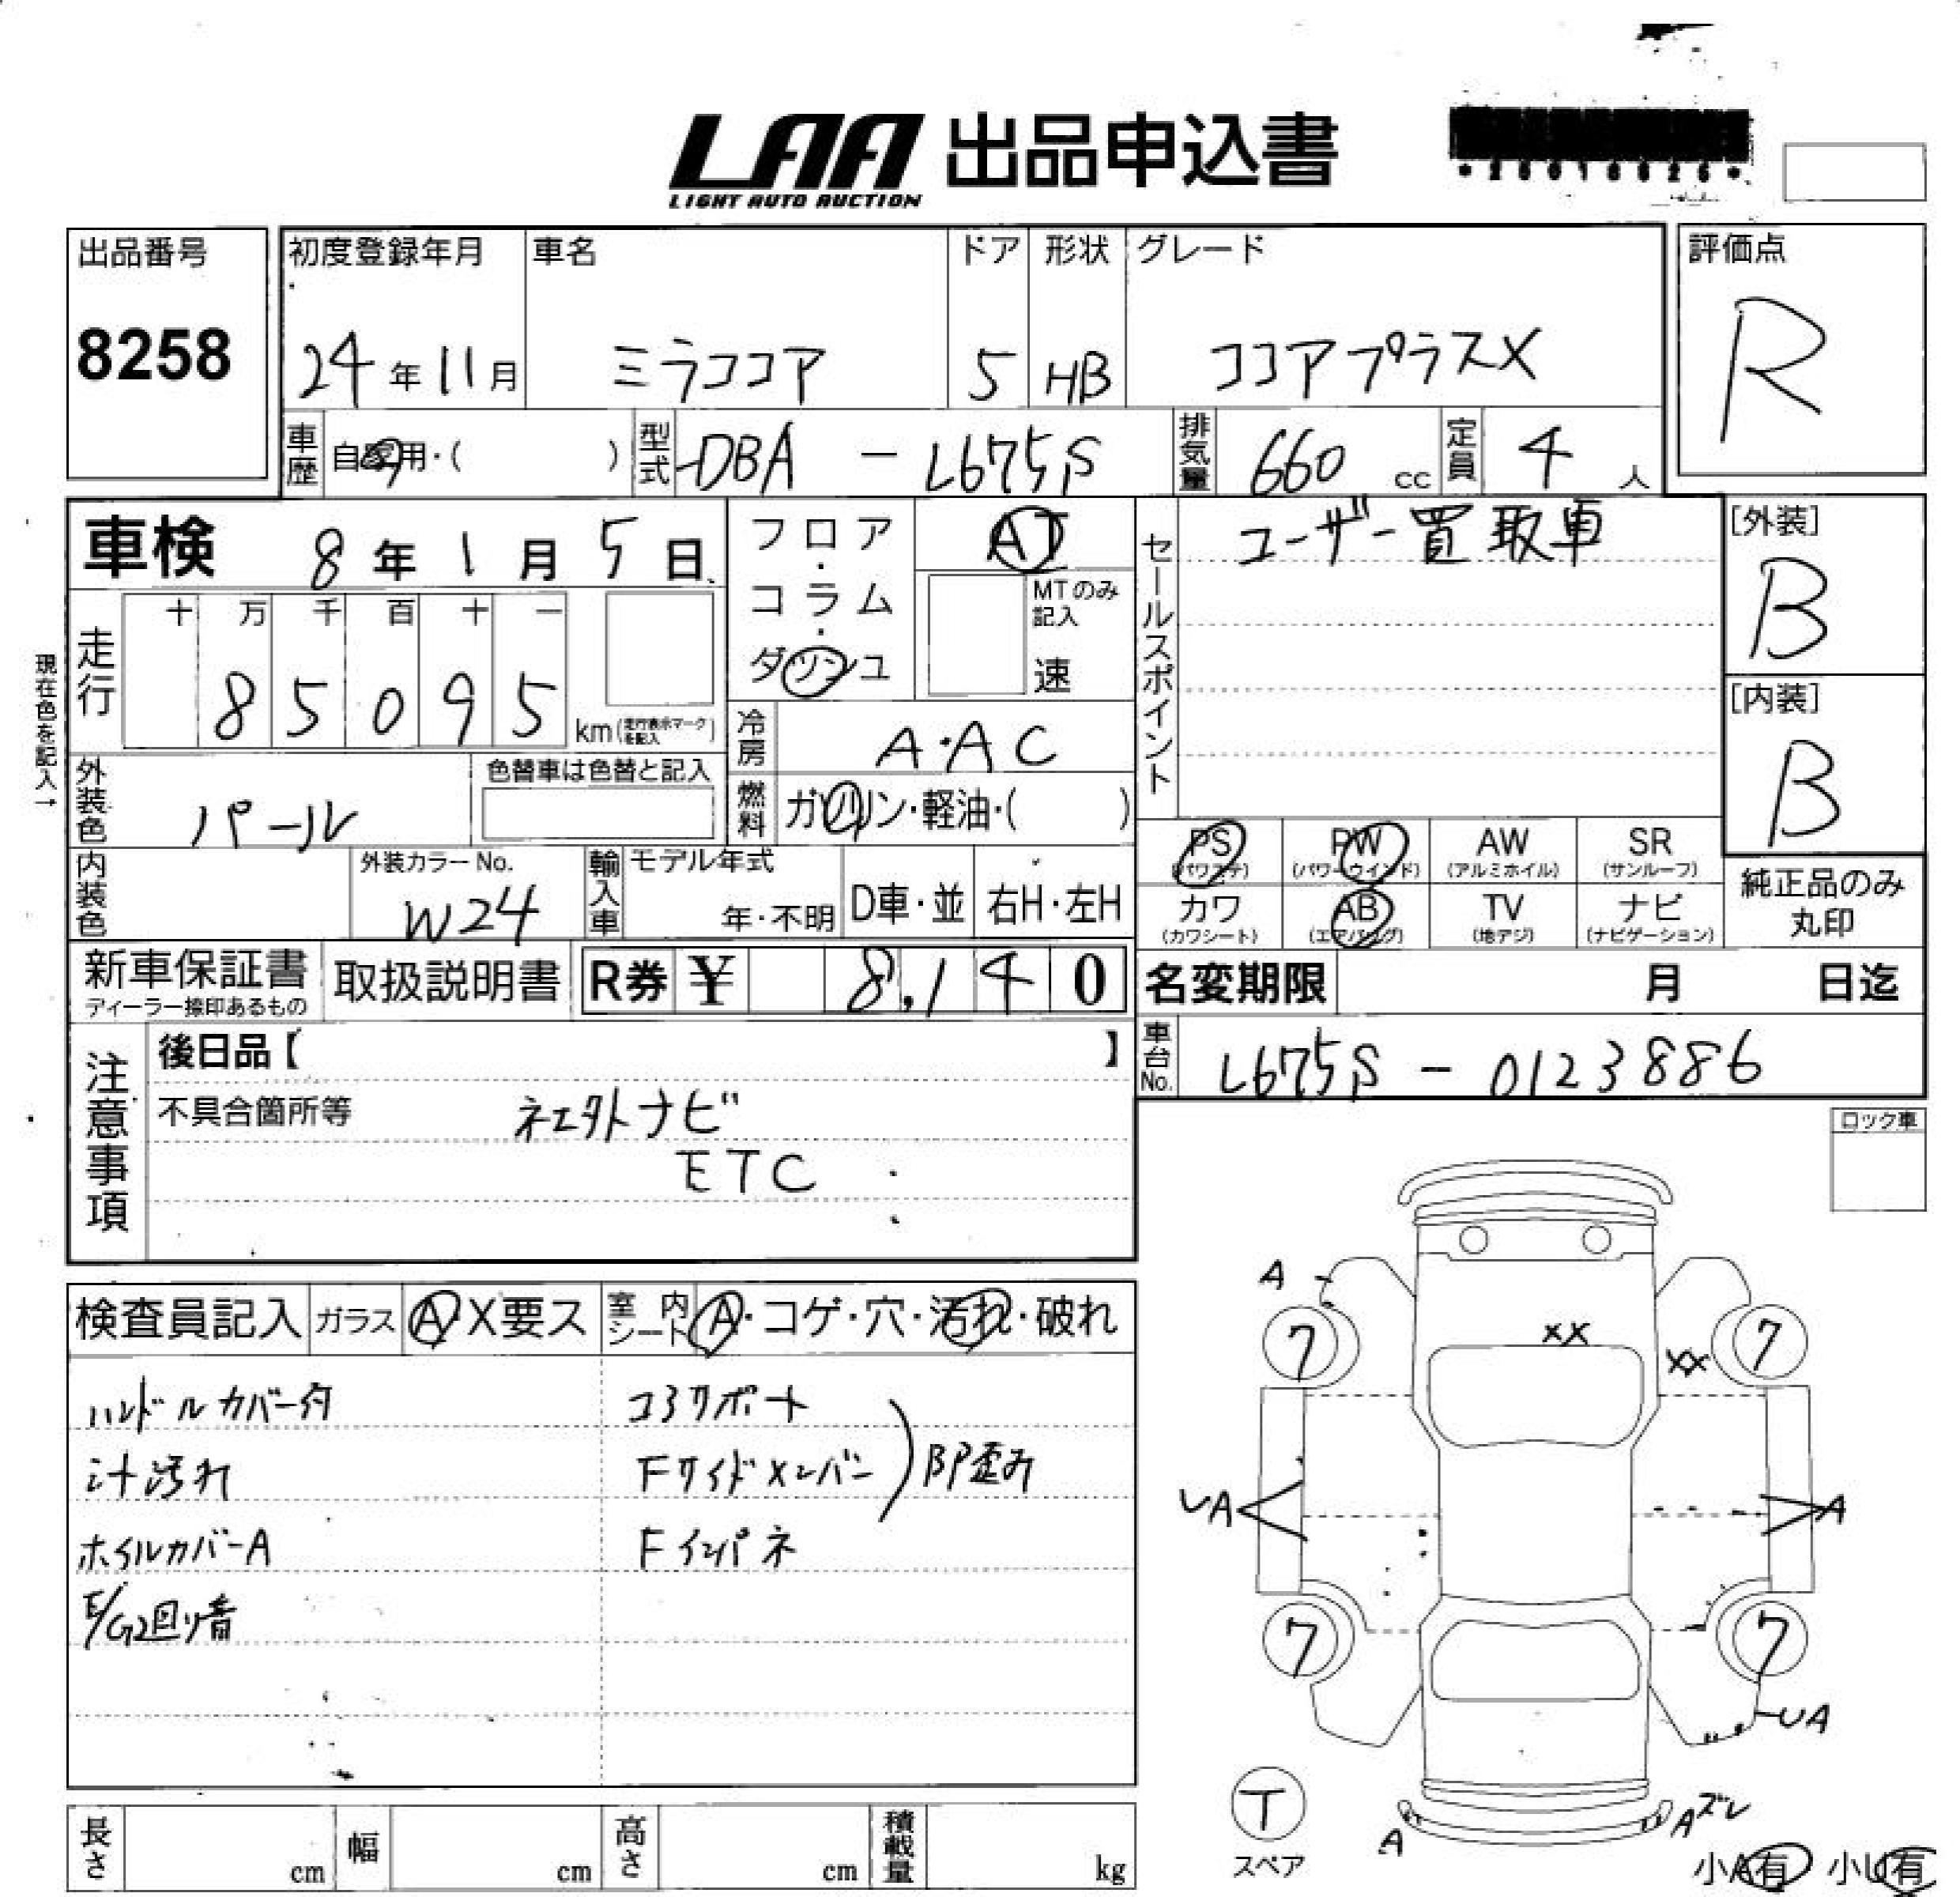 LAA 出品申込書
LIGHT AUTO AUCTION
出品番号
8258
初度登録年月
24年11月
車名
ミラココア
ドア
5
形状
HB
グレード
ココアプラスX
評価点
R
車歴
自家用・( )
型式
DBA - L675S
排気量
660 cc
定員
4 人
車検 8年1月5日
走行
十 万 千 百 十 一
8 5 0 9 5 km (走行表示マークを記入)
現在色を記入→
外装色
パール
色替車は色替と記入
内装色
外装カラーNo.
W24
フロア・コラム・ダッシュ
AT
MTのみ記入
速
冷房
A・AC
燃料
ガソリン・軽油・( )
輸入車
モデル年式
年・不明
D車・並
右H・左H
セールスポイント
ユーザー買取車
[外装]
B
[内装]
B
PS (パワステ)
PW (パワーウインド)
AW (アルミホイル)
SR (サンルーフ)
カワ (カワシート)
AB (エアバッグ)
TV (地デジ)
ナビ (ナビゲーション)
純正品のみ丸印
新車保証書
ディーラー捺印あるもの
取扱説明書
R券 ¥ 8,140
名変期限 月 日迄
車台No.
L675S - 0123886
注意事項
後日品【 】
不具合箇所等
社外ナビ
ETC
ロック車
検査員記入
ガラス A・X要ス
室内シート A・コゲ・穴・汚れ・破れ
ハンドルカバー付
汁汚れ
ホイルカバーA
E/G2回り音
コアサポート
Fサイドメンバー
即歪み
Fインパネ
A
7
7
XX
XX
UA
A
7
7
UA
T
スペア
A
Aズレ
小A有 小U有
長さ cm
幅 cm
高さ cm
積載量 kg